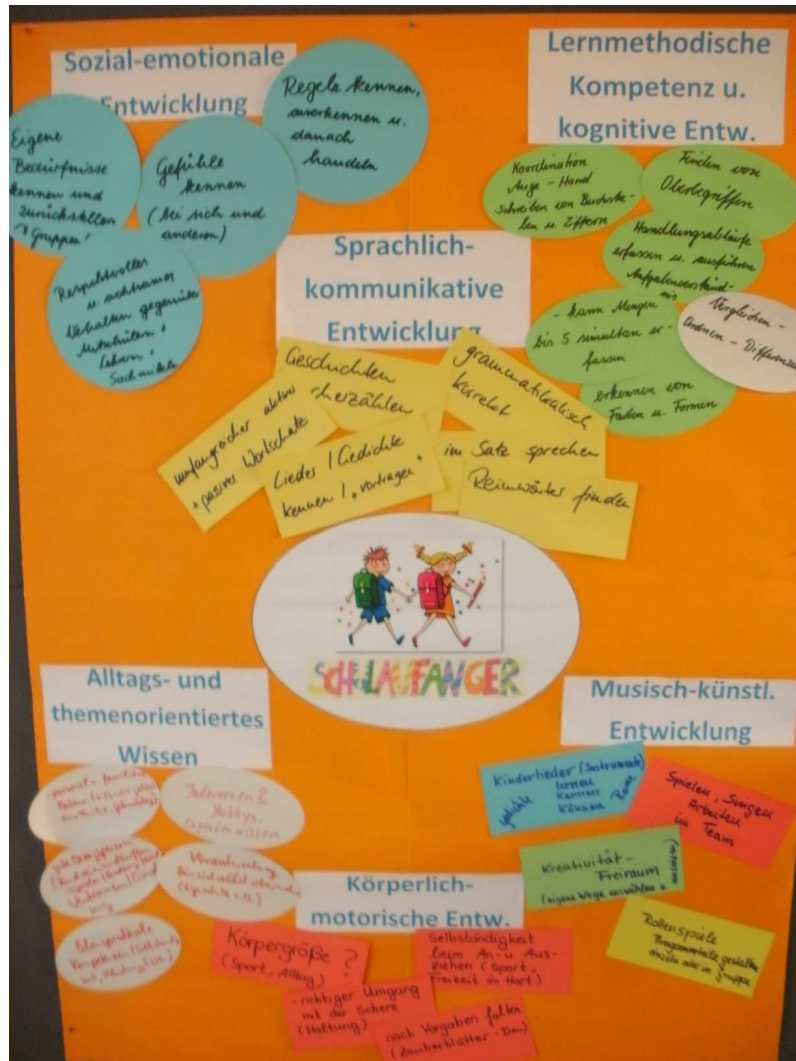 Sozial-emotionale
Entwicklung
Regeln kennen,
anerkennen u.
danach
handeln
Eigene
Bedürfnisse
kennen und
zurückstellen
Gruppen
Gefühle
kennen
(bei sich und
anderen)
Respektvoller
u. achtsamer
Verhalten gegenüber
Mitschülern,
Lehrern,
Sachmitteln
Lernmethodische
Kompetenz u.
kognitive Entw.
Koordination
Auge - Hand
schreiben von Buchsta-
ben u. Ziffern
Finden von
Oberbegriffen
Handlungsabläufe
erfassen u. ausführen
Aufgabenverständ-
nis
- kann Mengen
bis 5 simultan er-
fassen
Vergleichen -
Ordnen - Differenzen
erkennen von
Farben u. Formen
Sprachlich-
kommunikative
Entwicklung
Geschichten
erzählen
grammatikalisch
korrekt
im Satz sprechen
umfangreicher aktiver
+ passiver Wortschatz
Lieder / Gedichte
kennen / "vortragen"
Reimwörter finden
SCHULANFÄNGER
Alltags- und
themenorientiertes
Wissen
Interessen &
Hobbys,
Musisch-künstl.
Entwicklung
Kinderlieder (Instrumente)
Gedichte lernen Reime
kennen
können
Spielen, Singen
Arbeiten
im Team
Kreativität -
Freiraum
(eigene Wege auswählen u.
Rollenspiele
Programmteile gestalten
einzeln oder in Gruppe
Körperlich-
motorische Entw.
Körpergröße ?
(Sport, Alltag)
Selbständigkeit
beim An- u. Aus-
ziehen (Sport,
Freizeit im Hort)
- richtiger Umgang
mit der Schere
(Haltung)
nach Vorgaben falten
(Zauberblätter-